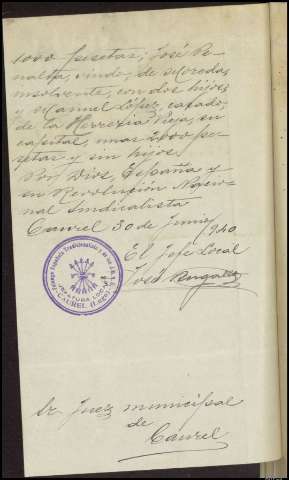 1000 pesetas; José Pe-
nalta, viudo, de Moreda,
insolvente, con dos hijos;
Manuel López, casado,
de la Herrería Vieja, su
capital, unas 2000 pe-
setas y sin hijos.
Por Dios, España y
su Revolución Nacio-
nal Sindicalista
Caurel 30 de Junio 1940
El Jefe Local
José
Falange Española Tradicionalista y de las J.O.N.S.
JEFATURA LOCAL
CAUREL (Lugo)
Sr. Juez municipal
de
Caurel